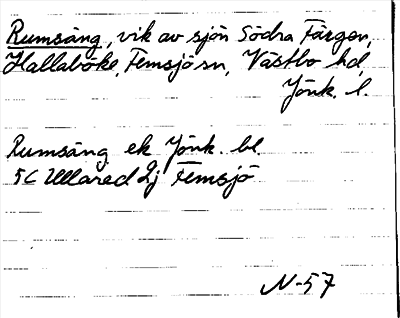 Rumsäng, vik av sjön Södra Färgen,
Hallaböke, Femsjö sn, Västbo hd,
Jönk. l.
Rumsäng ek Jönk. bl
5C Ullared 2j Femsjö
N-57